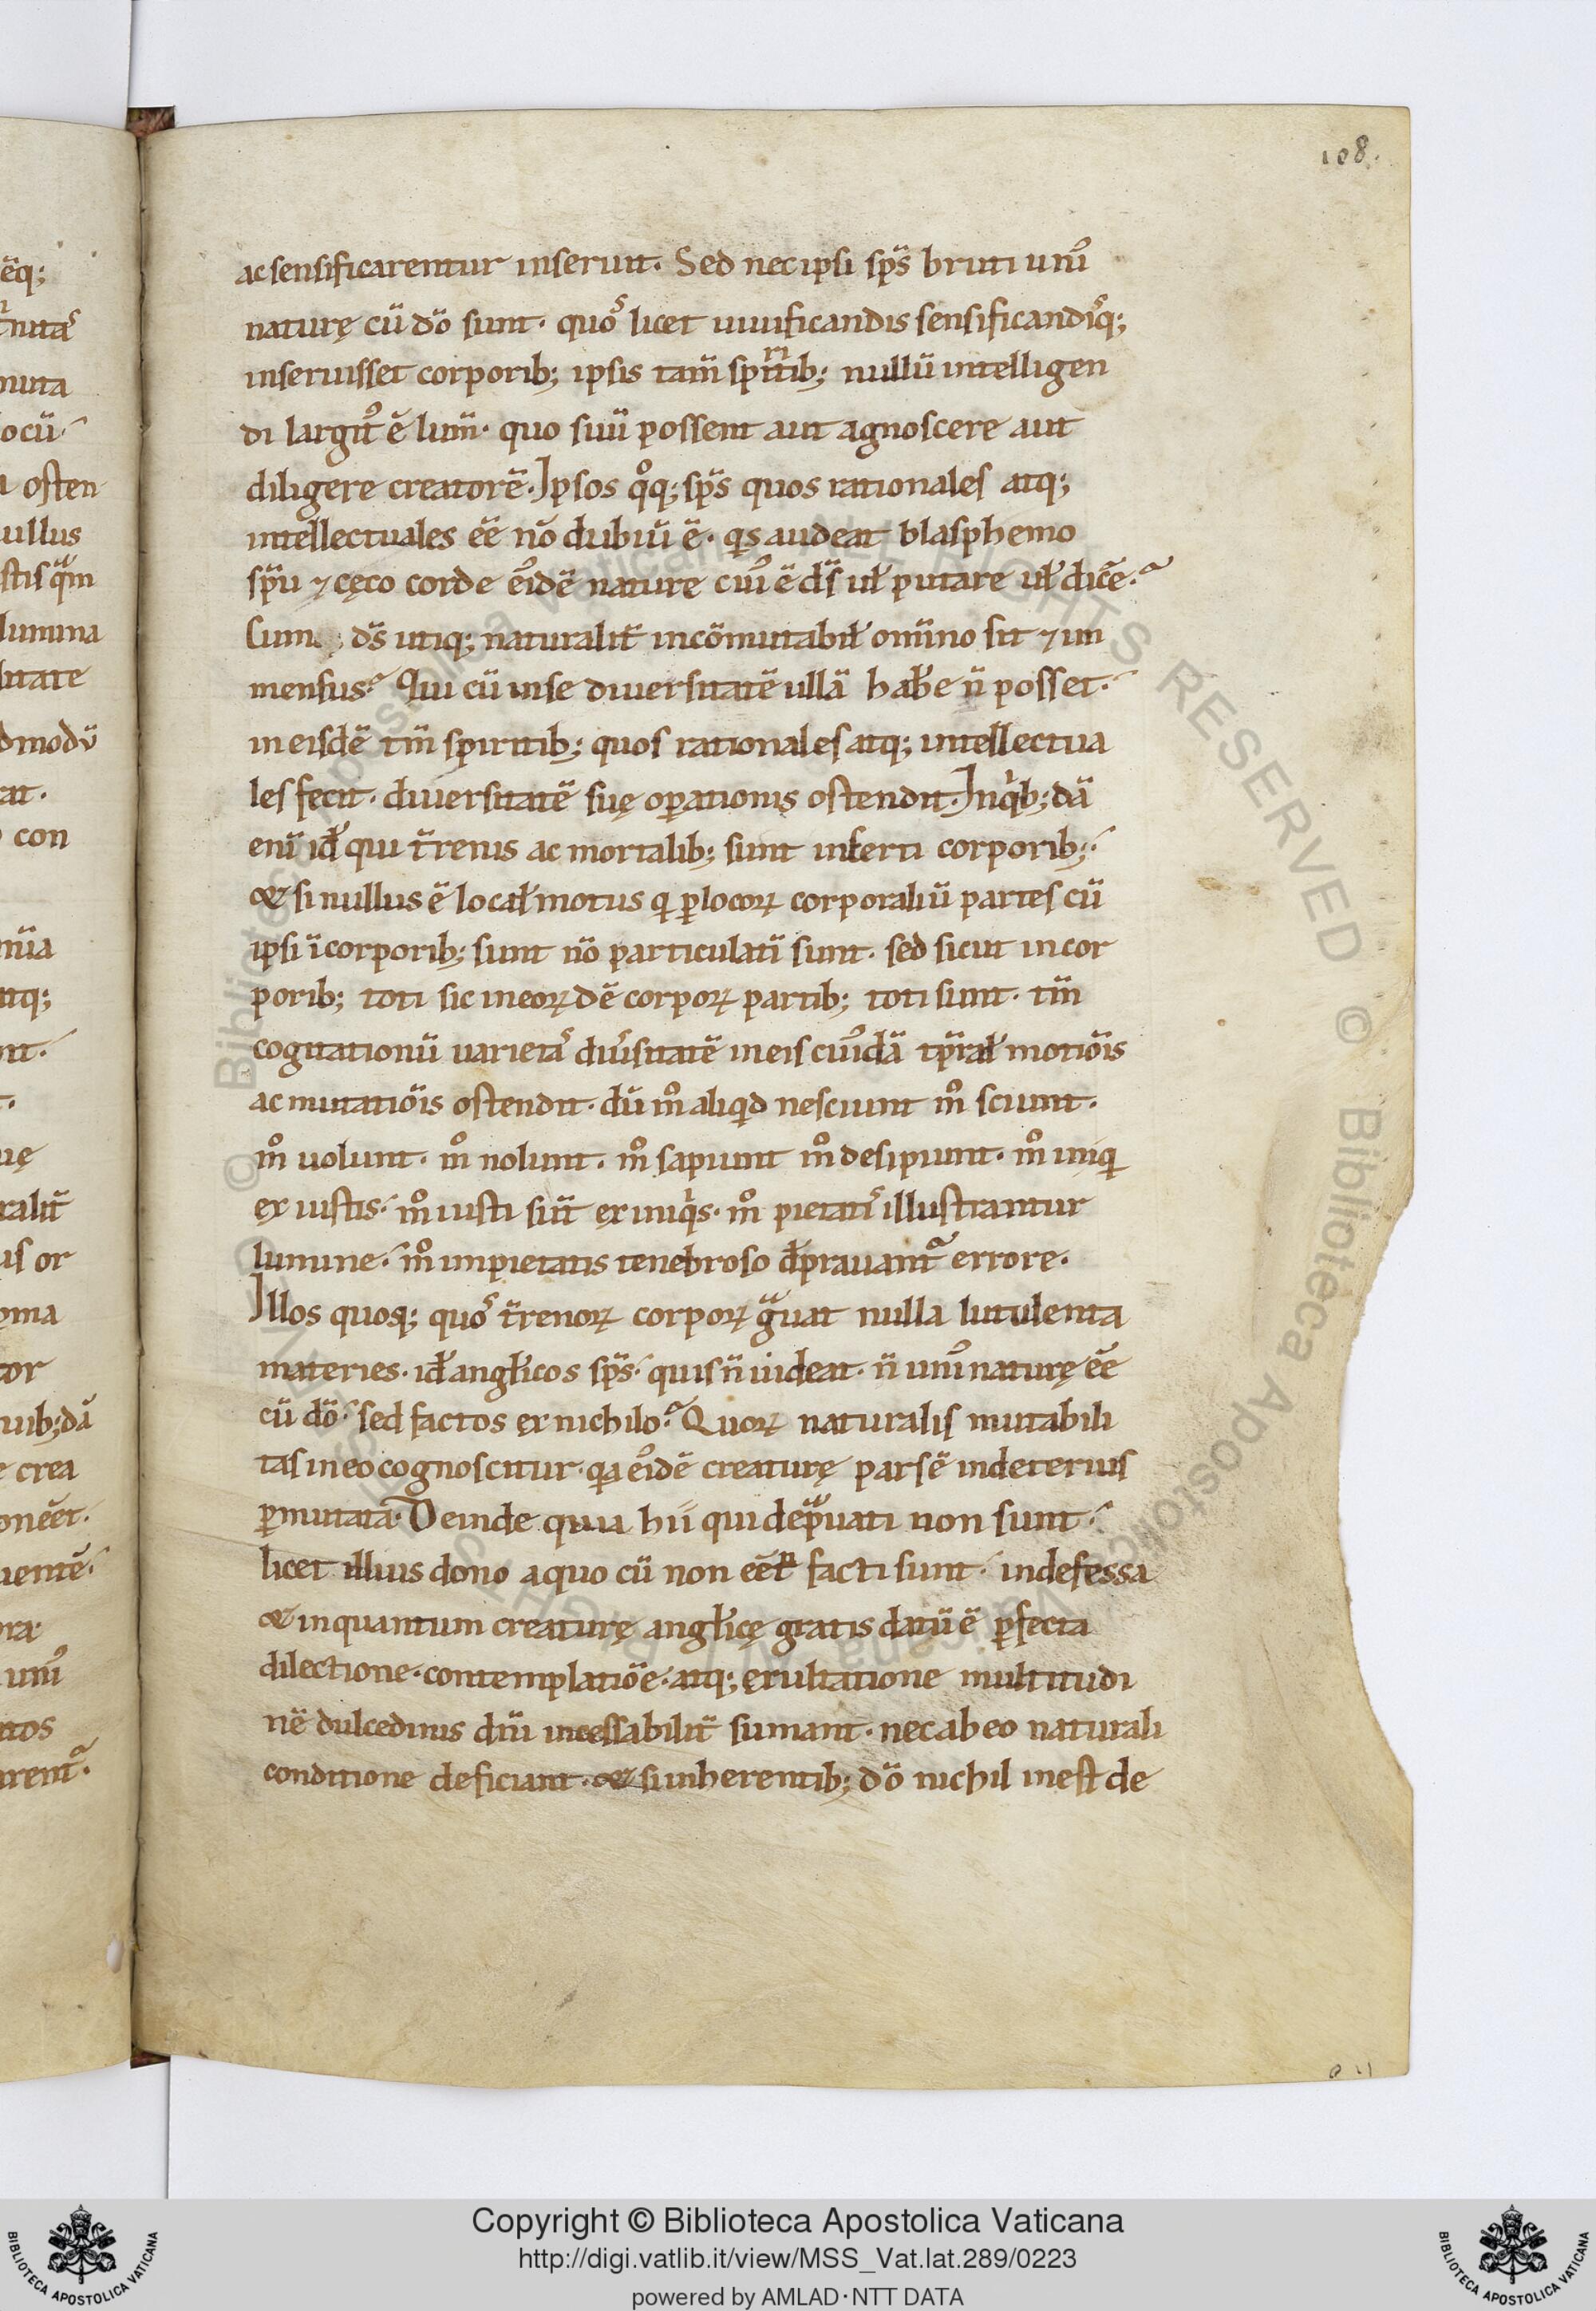 108.
ac sensificarentur inseruit. Sed nec ipsi sp̄s bruti uniꝰ
naturę cū dō sunt. quoˢ licet uiuificandis sensificandiˢq;
inseruisset corporib; ipsis tam̄ spiritib; nullū intelligen
di largitꝰ ē lum̄. quo suū possent aut agnoscere aut
diligere creatorē. Ipsos qͦq; sp̄s quos rationales atq;
intellectuales eē nō dubiū ē. qͥs audeat blasphemo
sp̄u ⁊ cęco corde eiꝰdē nature cuiꝰ ē ds̄ uł putare uł dicē.
Cum ds̄ utiq; naturalit̄ incōmutabił om̄ino sit ⁊ im
mensus. Qui cū inse diuersitatē ullā habe n̄ posset.
in eisdē tm̄ spiritib; quos rationales atq; intellectua
les fecit. diuersitatē suę oꝑationis ostendit. In qͥb;dā
enī idł qui t̄renis ac mortalib; sunt inserti corporib;
& si nullus ē locał motus qͥ ꝑ locoꝝ corporaliū partes cū
ipsi ī corporib; sunt nō particulati sunt. sed sicut in cor
porib; toti sic in eoꝝdē corpoꝝ partib; toti sunt. tm̄
cogitationū uarietaˢ diuˢsitatē in eis cuiꝰdā tp̄rał motiōis
ac mutatiōis ostendit. dū mͦ aliqͥd nesciunt mͦ sciunt.
mͦ uolunt. mͦ nolunt. mͦ sapiunt mͦ desipiunt. mͦ iniqͥ
ex iustis. mͦ iusti sūt ex iniqͥs. mͦ pietatiˢ illustrantur
lumine. mͦ impietatis tenebroso dꝑrauant᷑ errore.
Illos quoq; quoˢ t̄renoꝝ corpoꝝ gᵃuat nulla lutulenta
materies. idł anglicos sp̄s. quis n̄ uideat. n̄ uniꝰ naturę eē
cū dō. sed factos ex nichilo. Quoꝝ naturalis mutabili
tas in eo cognoscitur. qa eiꝰdē creaturę pars ē in deterius
ꝑmutata. Deinde quia hii qui depᵃuati non sunt.
licet illius dono a quo cū non eēt facti sunt. indefessa
& inquantum creaturę anglicę gratis datū ē ꝑfecta
dilectione. contemplatiōe. atq; exultatione multitudi
nē dulcedinis diu̅i incessabilit̄ sumant. nec ab eo naturali
conditione deficiant. & si inherentib; dō nichil inest de
Copyright © Biblioteca Apostolica Vaticana
http://digi.vatlib.it/view/MSS_Vat.lat.289/0223
powered by AMLAD·NTT DATA